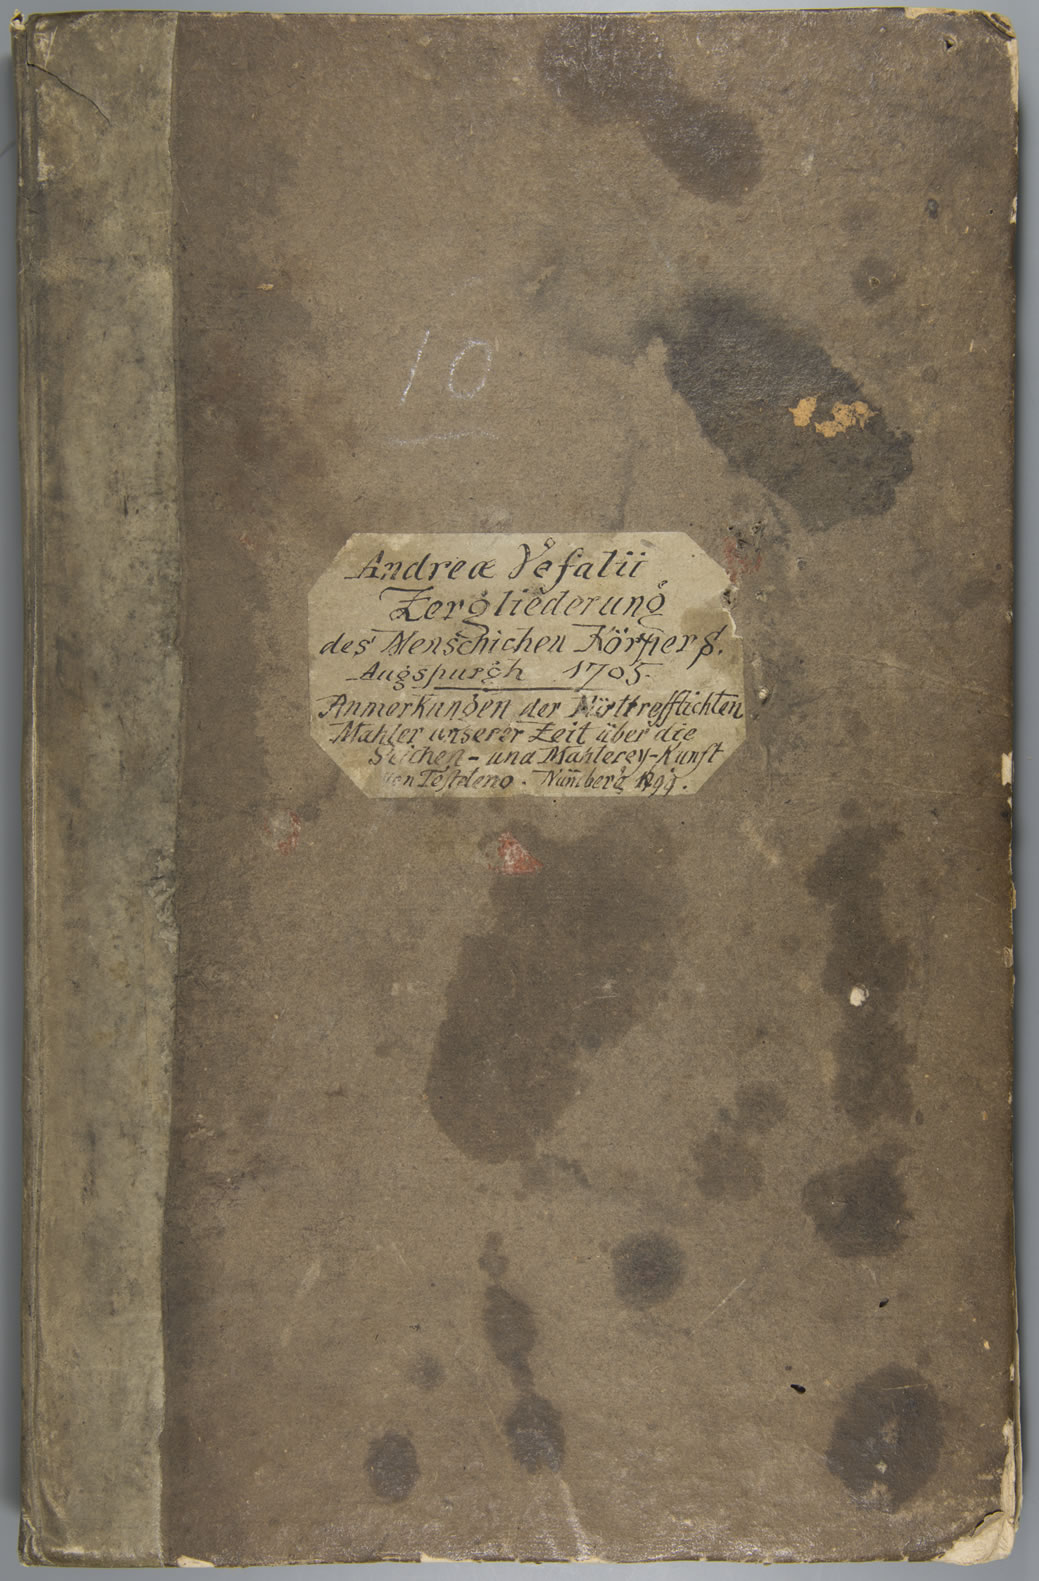 10
Andreæ Vesalii
Zergliederung
des Menschichen Körpers.
Augspurgh 1705.
Anmerkungen der Vürttrefflichten
Mahler unserer Zeit über die
Seichen- und Mahlerey-Kunst
von Testeleno. Nürnberg